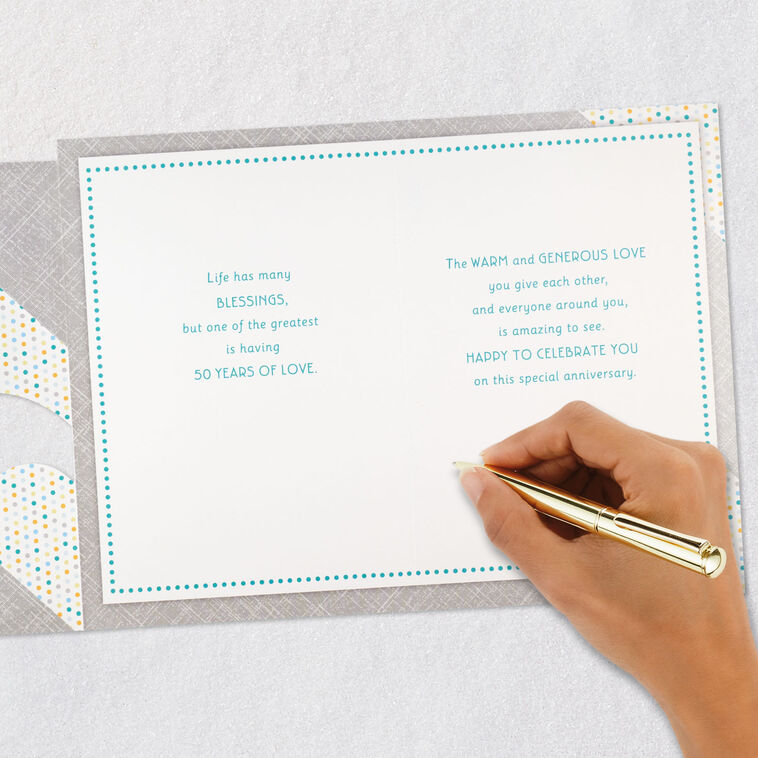 Life has many
BLESSINGS,
but one of the greatest
is having
50 YEARS OF LOVE.
The WARM and GENEROUS LOVE
you give each other,
and everyone around you,
is amazing to see.
HAPPY TO CELEBRATE YOU
on this special anniversary.